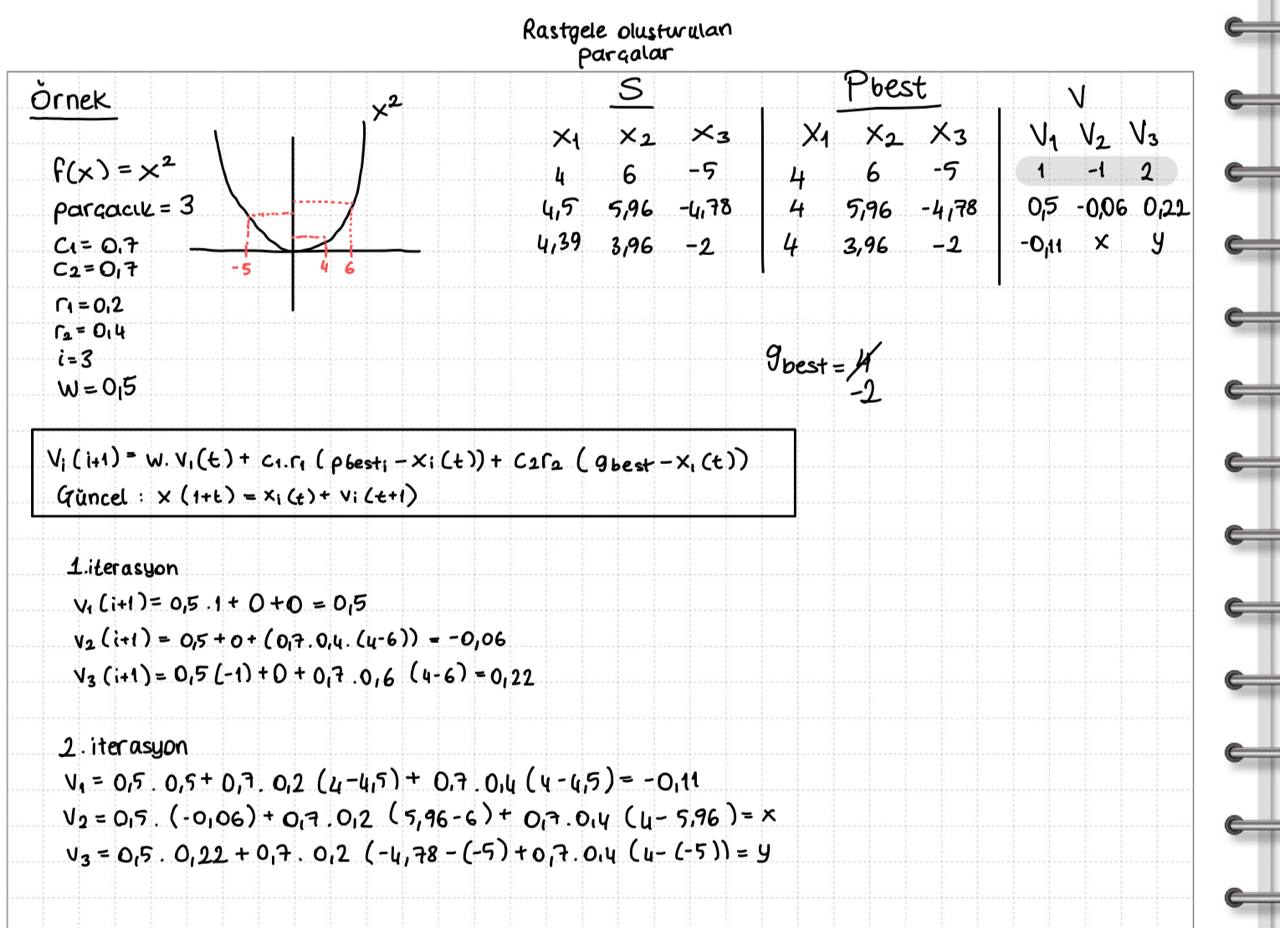 Rastgele oluşturulan
parçalar
Örnek
f(x) = x²
parçacık = 3
C1 = 0.7
C2 = 0,7
r1 = 0,2
r2 = 0,4
i = 3
W = 0,5
x²
-5 4 6
S
X1 X2 X3
4 6 -5
4,5 5,96 -4,78
4,39 3,96 -2
Pbest
X1 X2 X3
4 6 -5
4 5,96 -4,78
4 3,96 -2
V
V1 V2 V3
1 -1 2
0,5 -0,06 0,22
-0,11 x y
gbest = 4
-2
Vi (i+1) = W. Vi (t) + C1.r1 ( pbesti - Xi (t)) + C2r2 ( gbest - Xi (t))
Güncel : X (1+t) = Xi (t) + Vi (t+1)
1.iterasyon
V1 (i+1) = 0,5 .1 + 0 + 0 = 0,5
V2 (i+1) = 0,5 + 0 + (0,7. 0,4. (4-6)) = -0,06
V3 (i+1) = 0,5 (-1) + 0 + 0,7 .0,6 (4-6) = 0,22
2. iterasyon
V1 = 0,5 . 0,5 + 0,7 . 0,2 (4-4,5) + 0.7 . 0,4 (4-4,5) = -0,11
V2 = 0,5 . (-0,06) + 0,7 . 0,2 (5,96-6) + 0,7 . 0,4 (4- 5,96 ) = x
V3 = 0,5 . 0,22 + 0,7 . 0,2 (-4,78 - (-5) + 0,7 . 0,4 (4- (-5)) = y